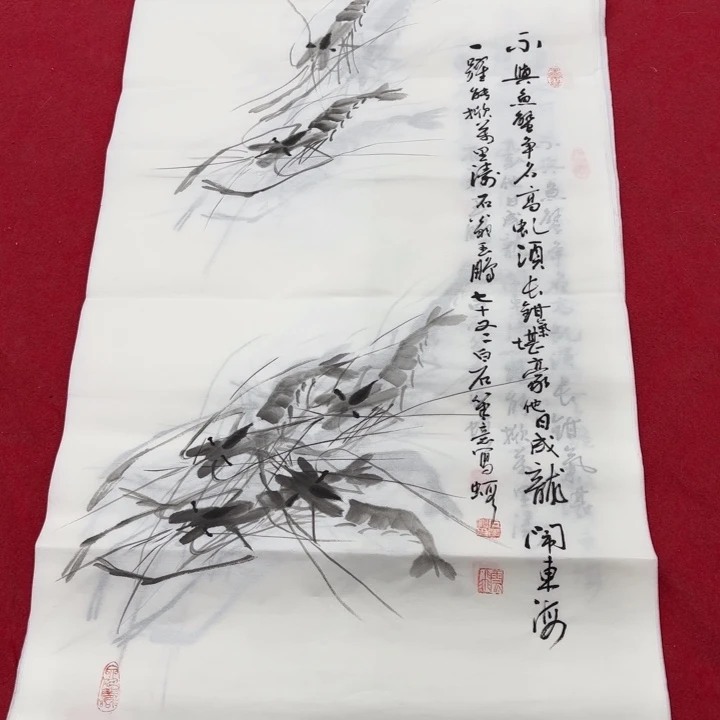 不與魚蟹争名高虬須长鉗氣堪豪他日成龍闹東海
一躍能掀萬里濤石翁王鵬七十又二白石筆意写蝦